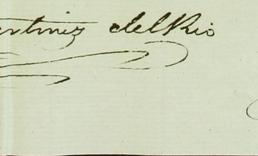 artinez del Rio